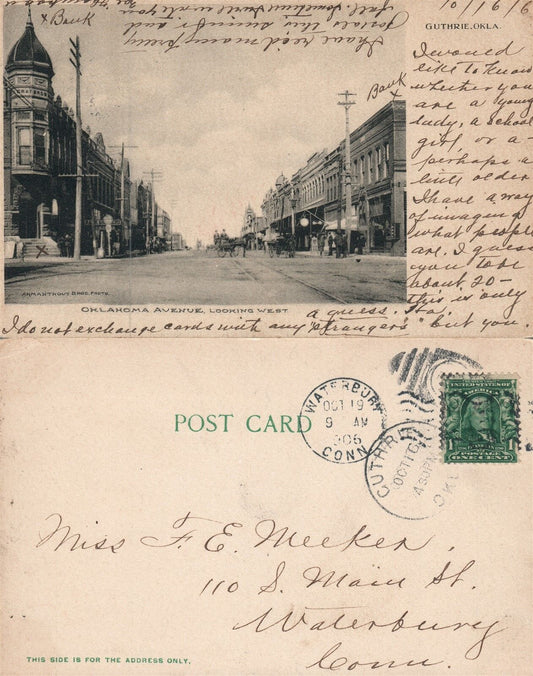 10/16/6
x Bank
I have rec'd many pretty
postals this summer and
fall. Sometime I will write you
GUTHRIE, OKLA.
I would
like to know
whether you
are a young
lady, a school
girl, or a -
perhaps a
little older
I have a way
of imaging
what people
are. I guess
you to be
about 20 -
this is only
a guess.
I do not exchange cards with any "strangers" but you.
Bank
x
x
ARMANTROUT BROS. PHOTO.
OKLAHOMA AVENUE, LOOKING WEST
POST CARD
WATERBURY
OCT 19
9 AM
1906
CONN.
GUTHRIE
OCT 17
4 30 PM
OKLA
UNITED STATES OF
AMERICA
1
POSTAGE
ONE CENT
Miss F. E. Meeker,
110 S. Main St.
Waterbury
Conn.
THIS SIDE IS FOR THE ADDRESS ONLY.